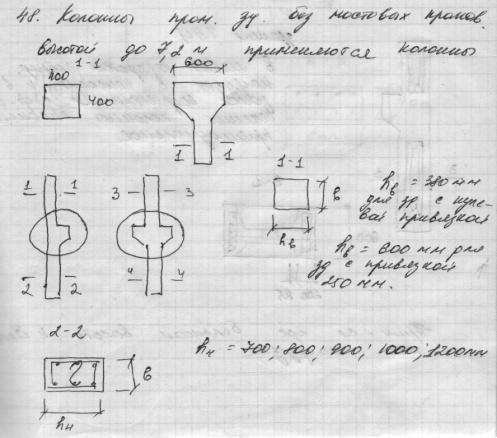 48. Колонны пром. зд. без мостовых кранов.
Высотой до 7,2 м применяются колонны
1-1
400
400
600
1 1
1 1
3 3
1-1
в
hв
hв = 380 мм
для зд. с нуле-
вой привязкой
hв = 600 мм для
зд с привязкой
250 мм.
2 2
4 4
2-2
в
hн
hн = 700; 800; 900; 1000; 1200мм